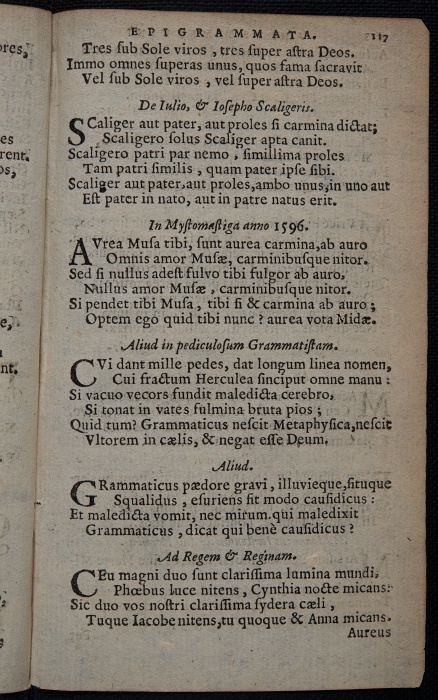 EPIGRAMMATA. 117
Tres ſub Sole viros, tres ſuper aſtra Deos.
Immo omnes ſuperas unus, quos fama ſacravit
Vel ſub Sole viros, vel ſuper aſtra Deos.
De Iulio, & Ioſepho Scaligeris.
SCaliger aut pater, aut proles ſi carmina dictat;
Scaligero ſolus Scaliger apta canit.
Scaligero patri par nemo, ſimillima proles
Tam patri ſimilis, quam pater ipſe ſibi.
Scaliger aut pater, aut proles, ambo unus, in uno aut
Eſt pater in nato, aut in patre natus erit.
In Myſtomaſtiga anno 1596.
AVrea Muſa tibi, ſunt aurea carmina, ab auro
Omnis amor Muſæ, carminibuſque nitor.
Sed ſi nullus adeſt fulvo tibi fulgor ab auro,
Nullus amor Muſæ, carminibuſque nitor.
Si pendet tibi Muſa, tibi ſi & carmina ab auro;
Optem ego quid tibi nunc? aurea vota Midæ.
Aliud in pediculoſum Grammatiſtam.
CVi dant mille pedes, dat longum linea nomen,
Cui fractum Herculea ſinciput omne manu:
Si vacuo vecors fundit maledicta cerebro,
Si tonat in vates fulmina bruta pios;
Quid tum? Grammaticus neſcit Metaphyſica, neſcit
Vltorem in cælis, & negat eſſe Deum.
Aliud.
GRammaticus pædore gravi, illuvieque, ſituque
Squalidus, eſuriens fit modo cauſidicus:
Et maledicta vomit, nec mirum. qui maledixit
Grammaticus, dicat qui benè cauſidicus?
Ad Regem & Reginam.
CEu magni duo ſunt clariſſima lumina mundi,
Phœbus luce nitens, Cynthia nocte micans:
Sic duo vos noſtri clariſſima ſydera cæli,
Tuque Iacobe nitens, tu quoque & Anna micans.
Aureus